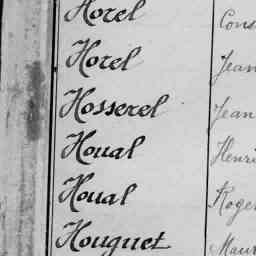 Horel Cons
Horel Jean
Hosserel Jean
Houal Henri
Houal Roger
Houguet Maur